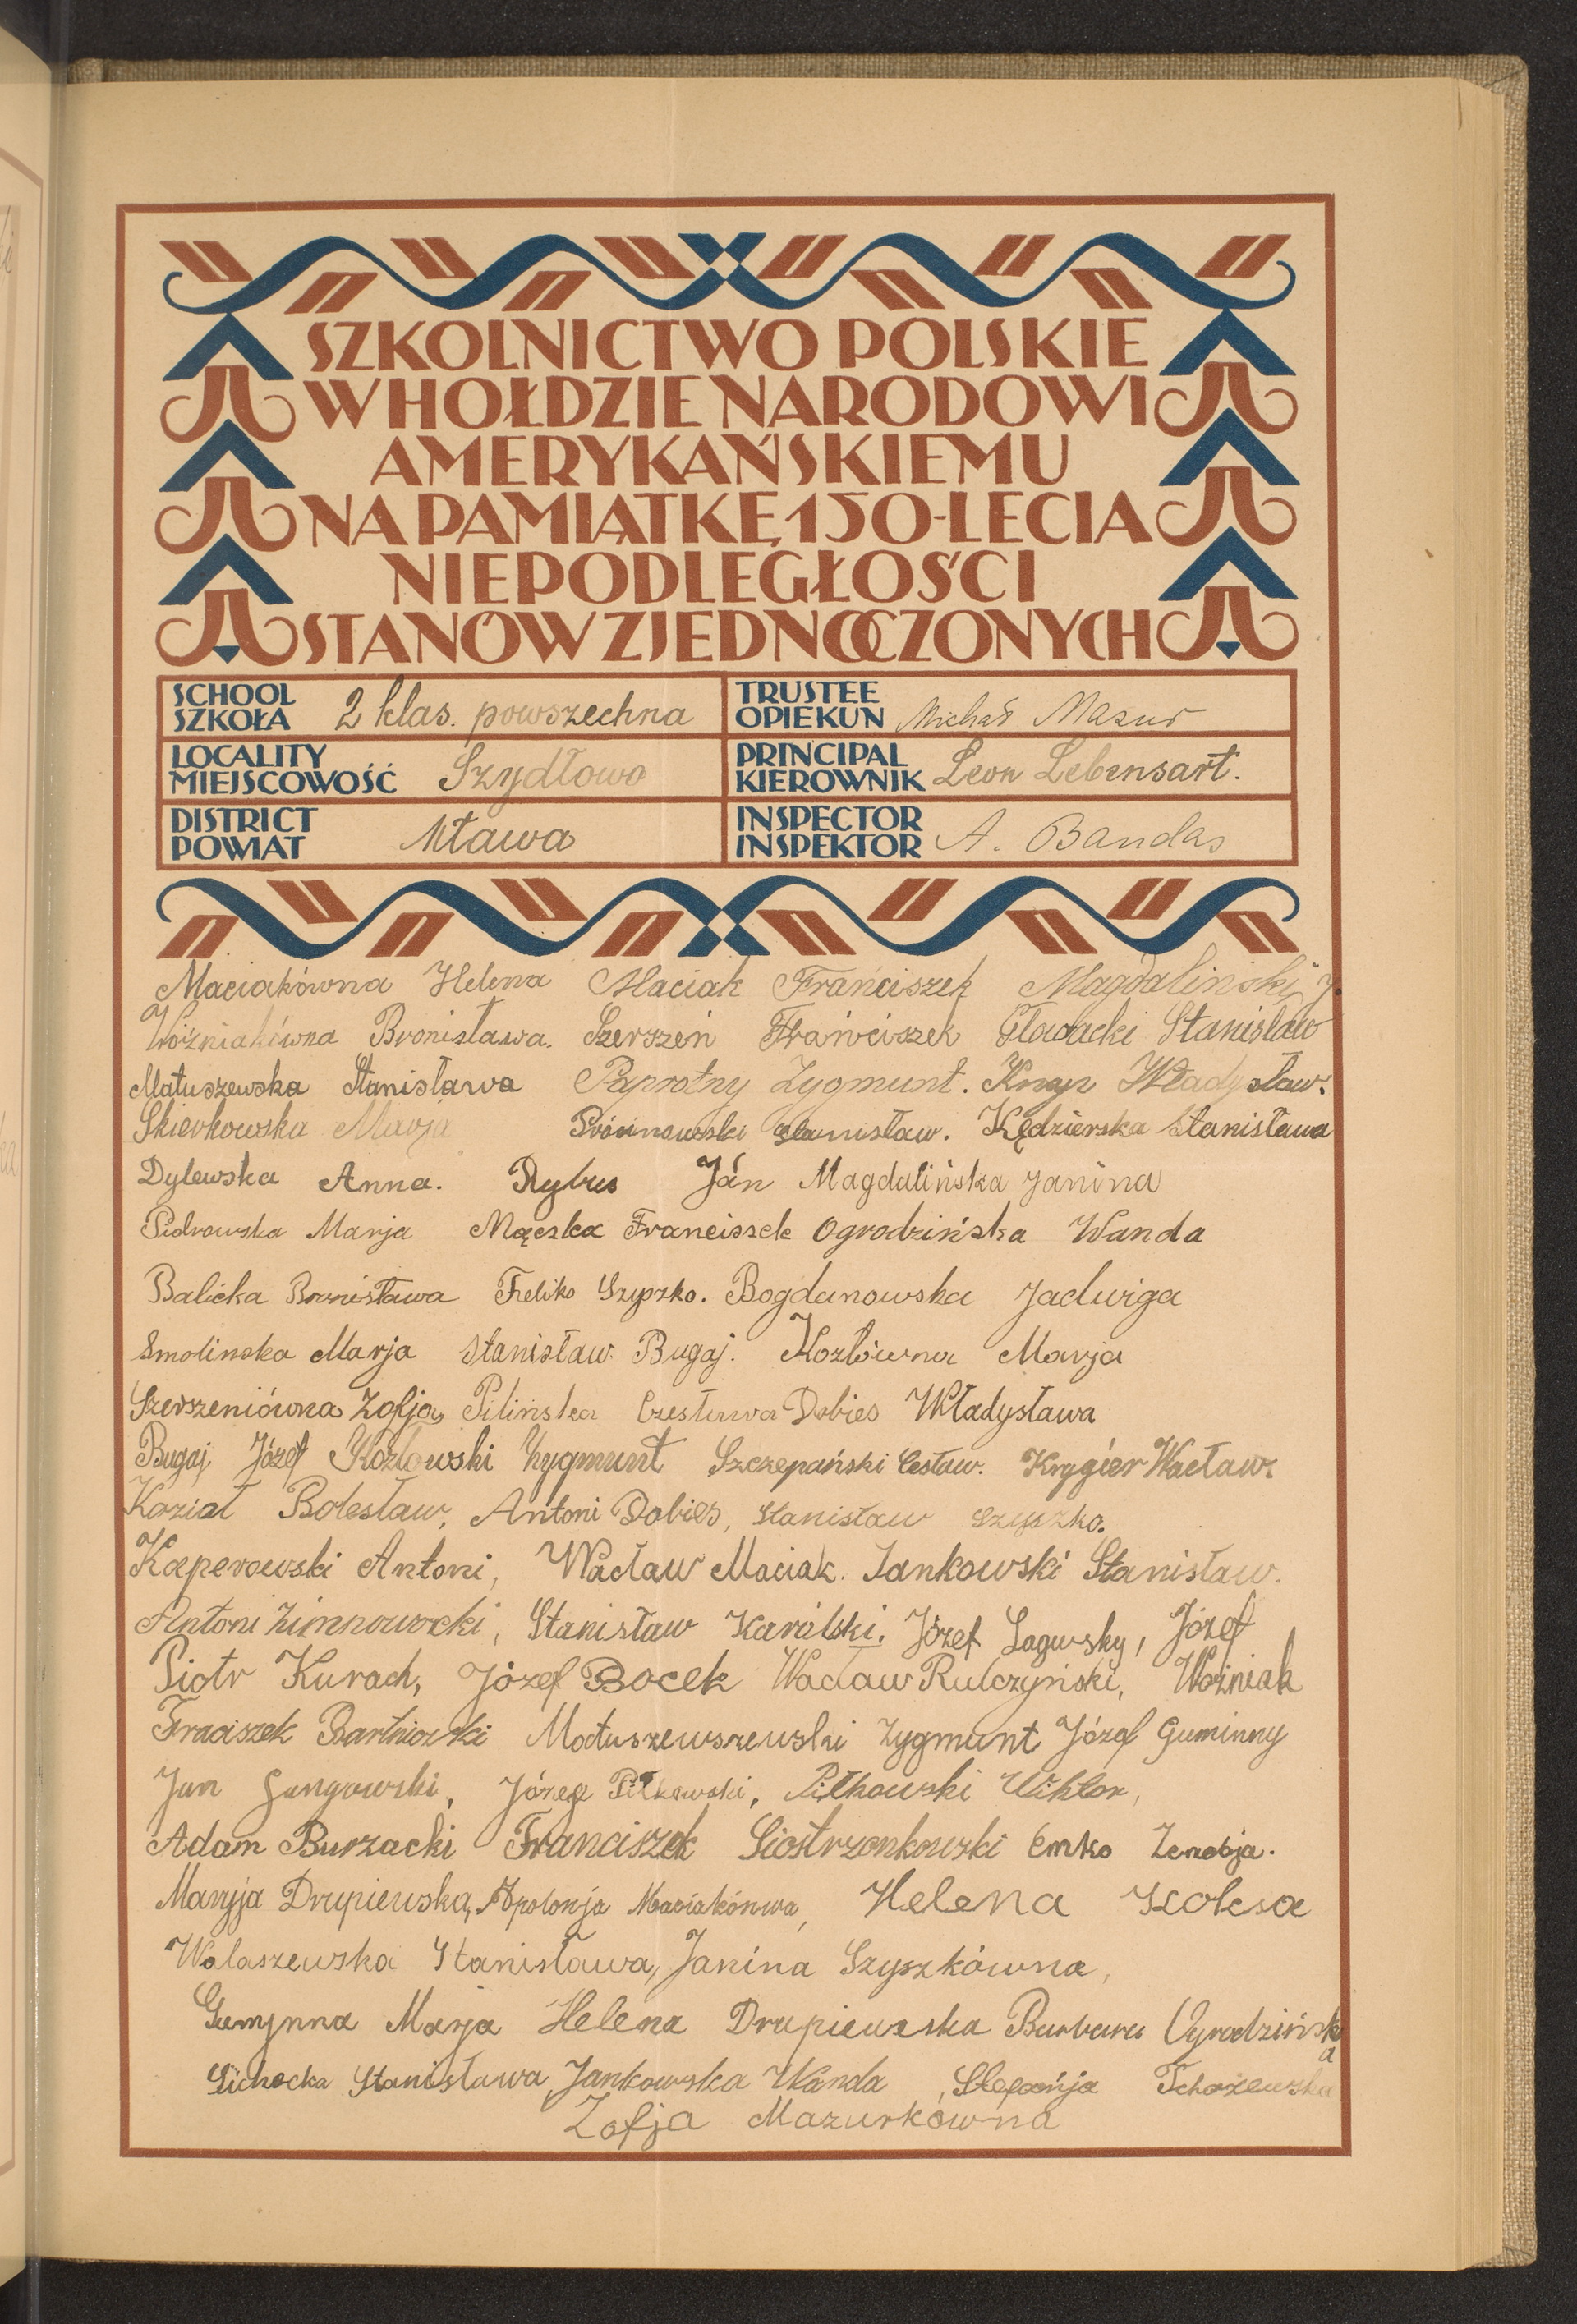 SZKOLNICTWO POLSKIE
W HOŁDZIE NARODOWI
AMERYKAŃSKIEMU
NA PAMIĄTKĘ 150-LECIA
NIEPODLEGŁOŚCI
STANÓW ZJEDNOCZONYCH
SCHOOL
SZKOŁA 2 klas. powszechna
TRUSTEE
OPIEKUN Michał Mazur
LOCALITY
MIEJSCOWOŚĆ Szydłowo
PRINCIPAL
KIEROWNIK Leon Lebensart.
DISTRICT
POWIAT Mława
INSPECTOR
INSPEKTOR A. Bandas
Maciakówna Helena Maciak Franciszek Magdaliński J.
Woźniakówna Bronisława. Szerszeń Franciszek Głowacki Stanisław
Matuszewska Stanisława Paprotny Zygmunt. Knap Władysław.
Skierkowska Marja Stanisław. Kędzierska Stanisława
Dylewska Anna. Rybus Ján Magdalińska Janina
Piotrowska Marja Mączka Franciszek Ogrodzińska Wanda
Balicka Bronisława Feliks Szyszko. Bogdanowska Jadwiga
Smolinska Marja Stanisław Bugaj. Kozłówna Marja
Szerszeniówna Zofja, Pilińska Czesława Dobies Władysława
Bugaj Józef Kozłowski Zygmunt Szczepański Cesław. Krygier Wacław
Kozioł Bolesław, Antoni Dobies, Stanisław Szyszko.
Kacperowski Antoni, Wacław Maciak. Jankowski Stanisław.
Antoni Zimnowocki, Stanisław Karólski. Józef Lagowsky, Józef
Piotr Kurach, Józef Bocek Wacław Rulczyński, Woźniak
Fraciszek Bartnicki Matuszewszewski Zygmunt Józef Guminny
Jan Józef Piłkowski, Piłkowski Wiktor,
Adam Burzacki Franciszek Siostrzonkowski Emko Zenobja.
Maryja Drupiewska, Apolonja Maciakónwa, Helena
Wolaszewska Stanisława, Janina Szyszkówna,
Gumynna Marja Helena Drupiewska Barbara Ogrodzińska
Cichocka Stanisława Jankowska Wanda, Stefańja Tchorzewska
Zofja Mazurkówna